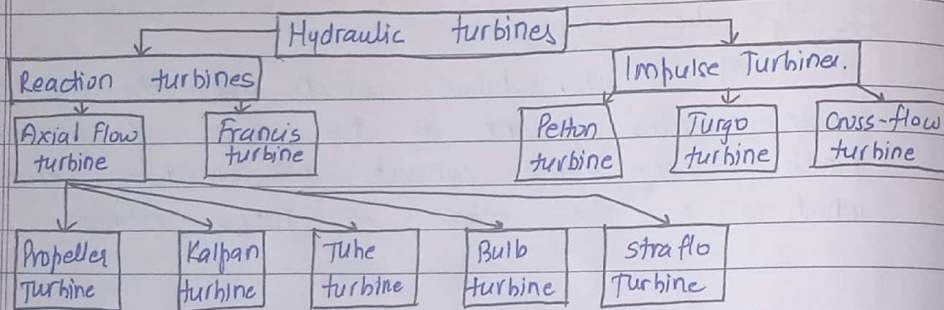 Hydraulic turbines
Reaction turbines
Impulse Turbines.
Axial flow
turbine
Francis
turbine
Pelton
turbine
Turgo
turbine
Cross-flow
turbine
Propeller
Turbine
Kalpan
turbine
Tube
turbine
Bulb
turbine
straflo
Turbine